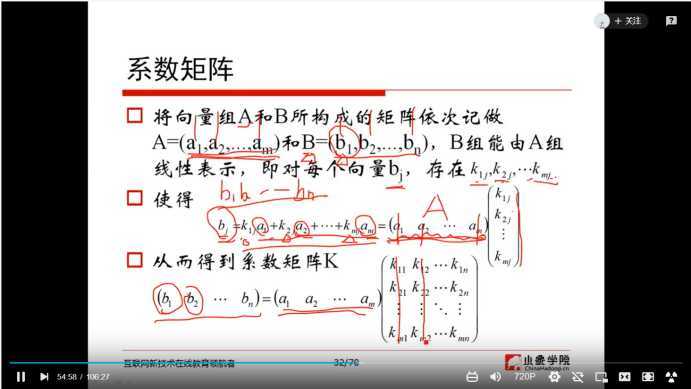 + 关注
系数矩阵
将向量组A和B所构成的矩阵依次记做
A=(a1,a2,…,am)和B=(b1,b2,…,bn)，B组能由A组
线性表示，即对每个向量bj，存在 k1j,k2j,⋯kmj
使得 b1 b2 -- bn
A
bj=k1ja1+k2ja2+⋯+kmjam=(a1 a2 ⋯ am)(k1j k2j ⋮ kmj)
从而得到系数矩阵K
(b1 b2 ⋯ bn)=(a1 a2 ⋯ am)
k11 k12 ⋯ k1n
k21 k22 ⋯ k2n
⋮ ⋮ ⋱ ⋮
km1 km2 ⋯ kmn
互联网新技术在线教育领航者
32/70
小象学院
ChinaHadoop.cn
54:58 / 106:27
720P